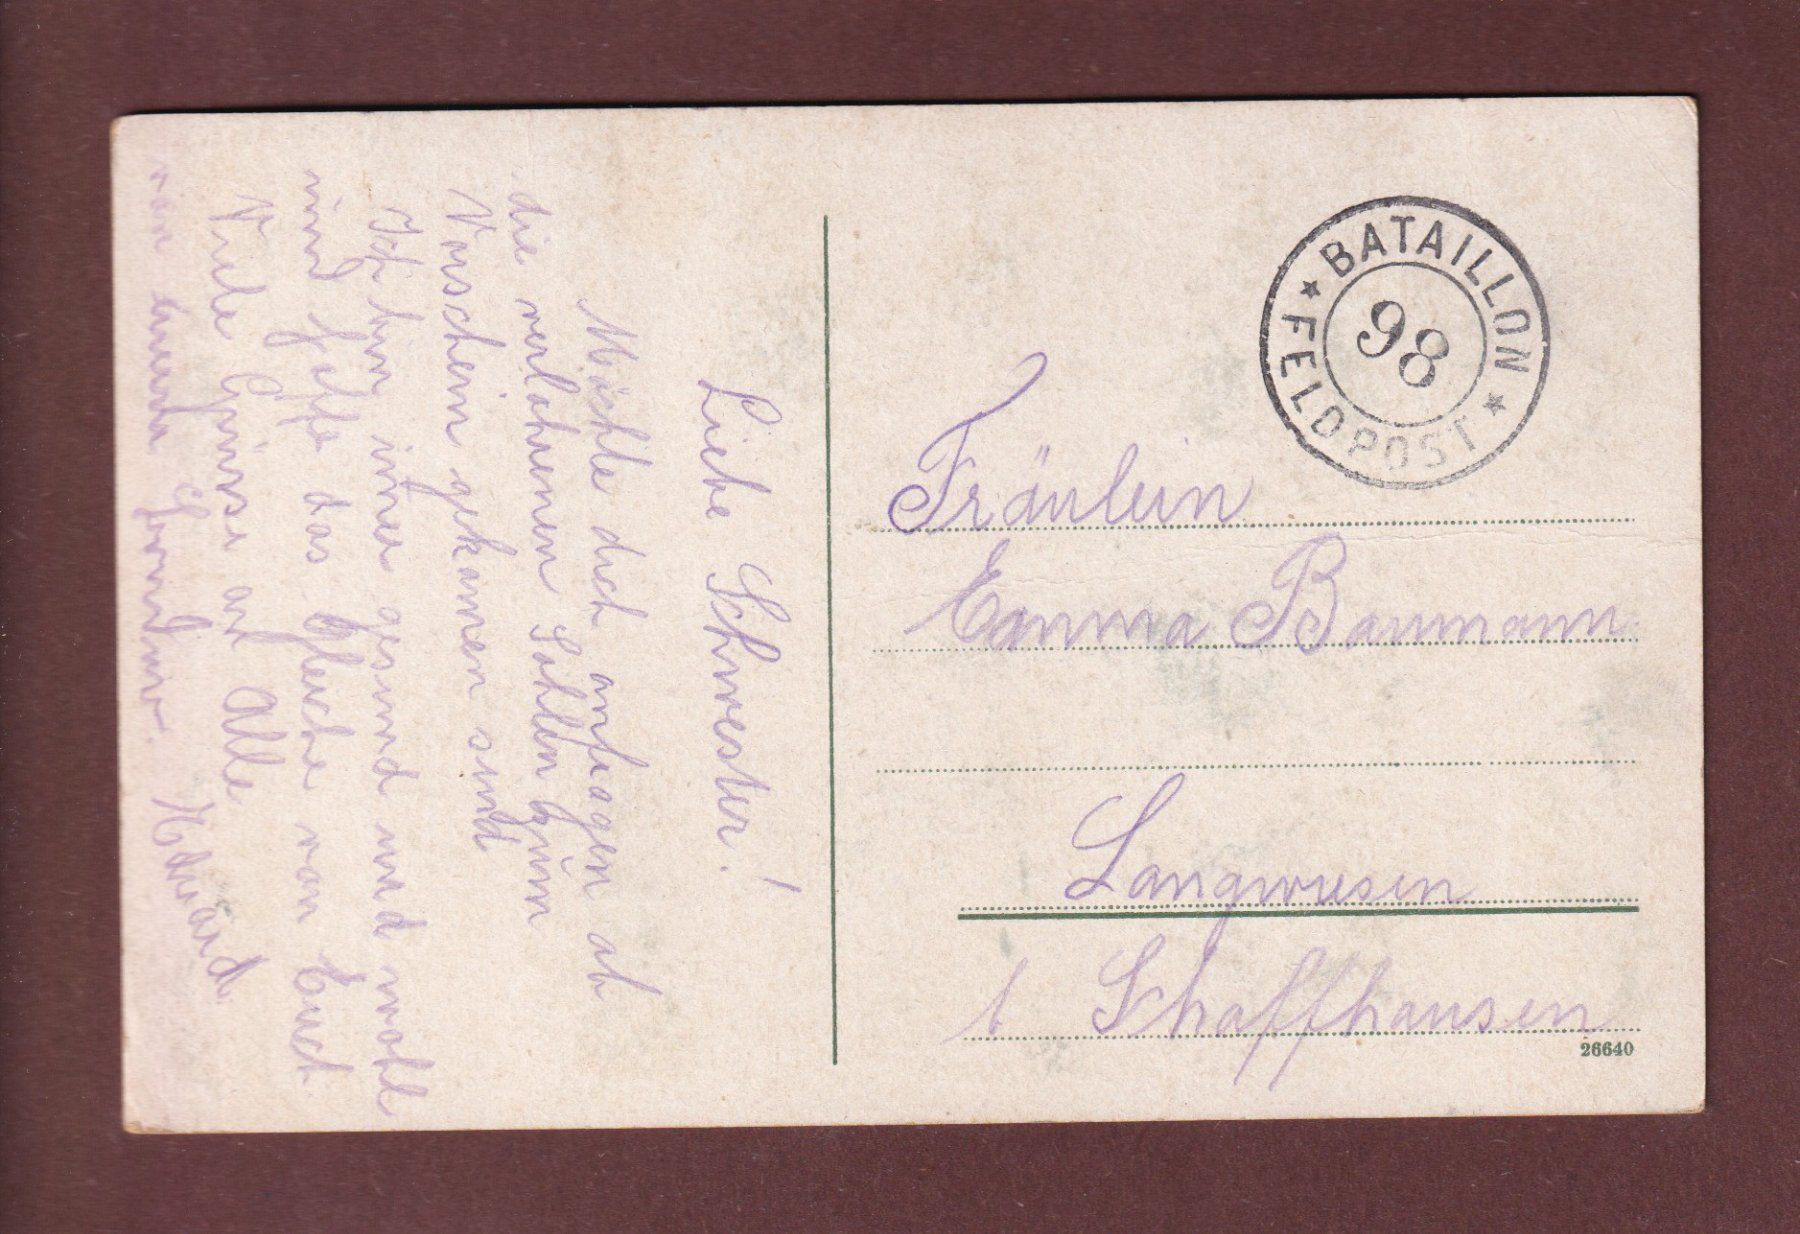 Liebe Schwester!
Möchte dich anfragen ob
die verlohrenen Sohlen zum
Vorschein gekamen sind
Ich bin imer gesund und wohl
und hoffe das Gleiche von Euch
Viele Grüsse an Alle
von eurem
Eduard
BATAILLON
98
FELDPOST
Fräulein
Emma Baumann
Langwiesen
b Schaffhausen
26640